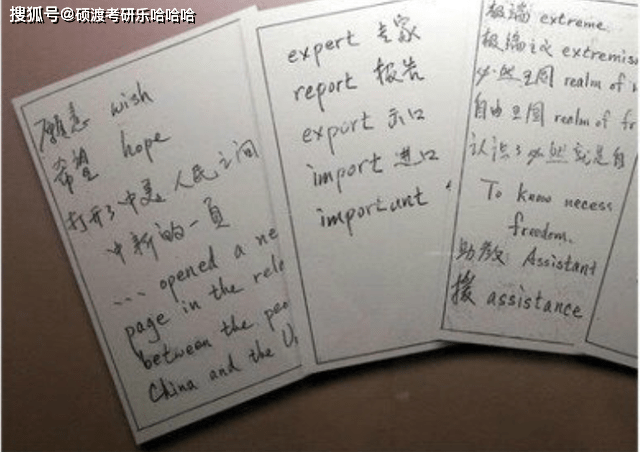 搜狐号@硕渡考研乐哈哈哈
愿意 wish
希望 hope
打开了中美人民之间
中新的一頁
... opened a ne
page in the rela
between the peo
China and the U
expert 专家
report 报告
export 出口
import 进口
important
极端 extreme
极端主义 extremis
必然王国 realm of
自由王国 realm of fr
认识了必然就是自
To know necess
freedom.
助教 Assistant
援 assistance